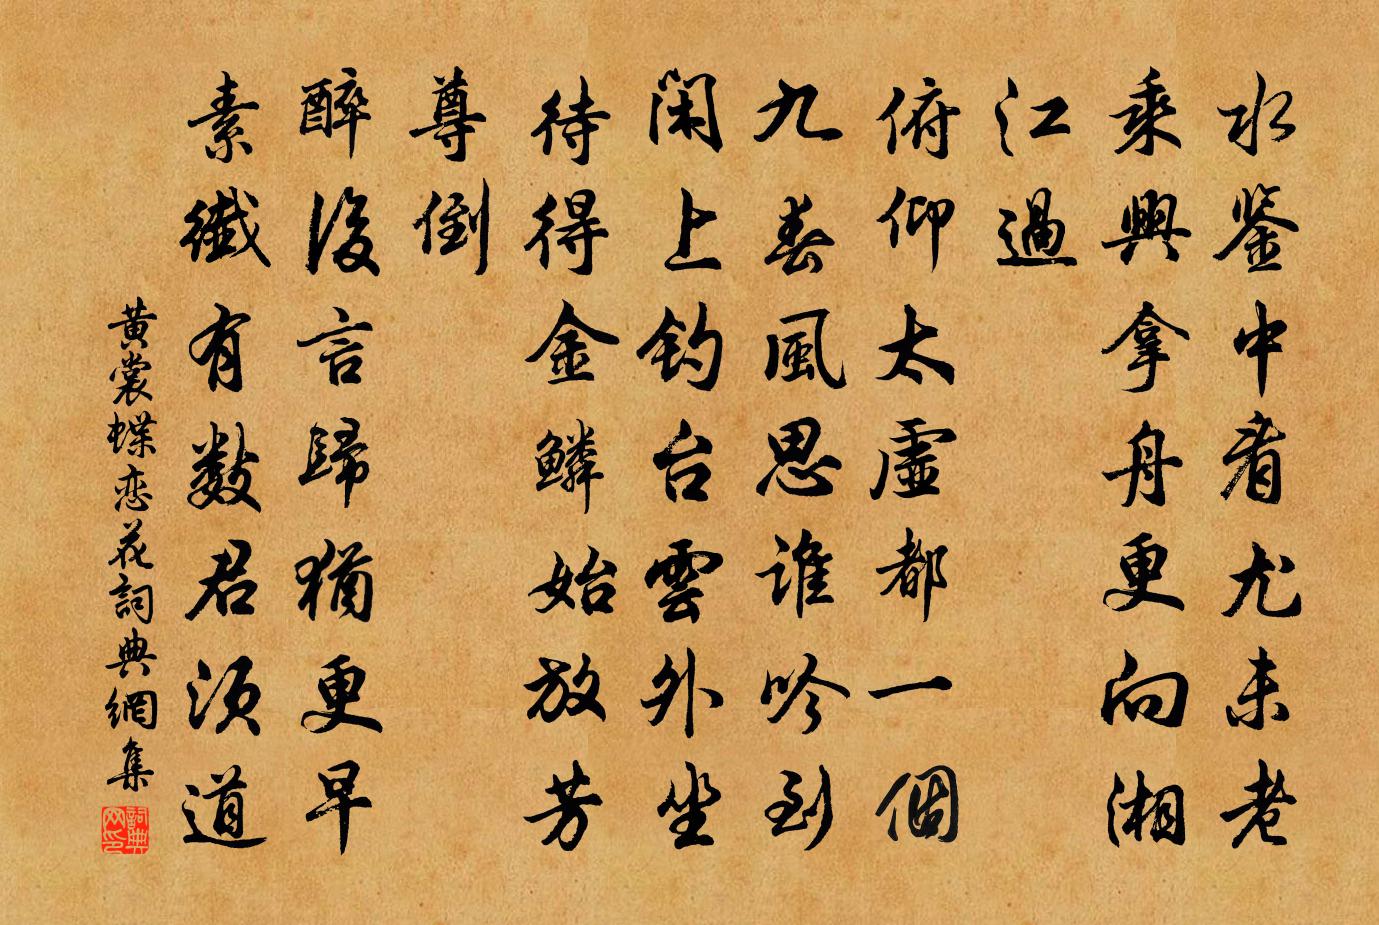 水鉴中看尤未老
乘興拿舟更向湘
江過
俯仰太虛都一個
九春風思誰吟到
閑上釣台雲外坐
待得金鱗始放芳
尊倒
醉後言歸猶更早
素纖有數君須道
黄裳蝶恋花詞典網集
詞典网印